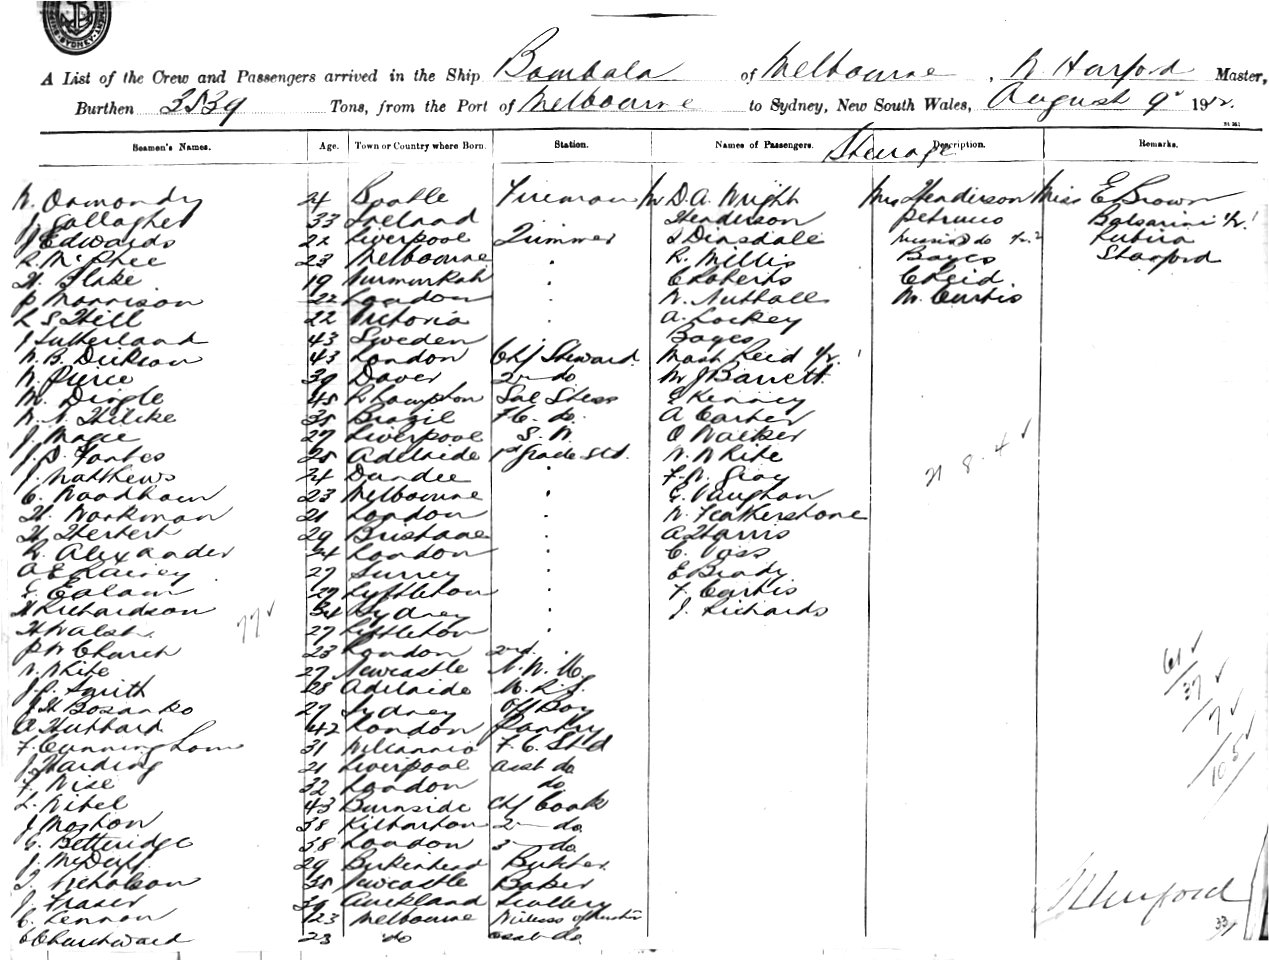 A List of the Crew and Passengers arrived in the Ship Bombala of Melbourne, W Harford Master,
Burthen Tons, from the Port of Melbourne to Sydney, New South Wales, August 9 1912.
Seamen's Names. Age. Town or Country where Born. Station. Names of Passengers. Description. Remarks.
Steerage
W. Ormondy 24 Bootle Fireman Mr D. A. Wright Mrs Henderson Miss E Brown
J. Gallagher 33 Ireland Henderson Petrucco Balsarini
J Edwards 22 Liverpool Trimmer Dinsdale
R. McPhee 23 Melbourne R. Millis Bayes Stanford
H. Blake 19 Murmurkah C Roberts C Reid
P Morrison 22 London W. Nuthall M. Curtis
L S Hill 22 Victoria A. Lockey
J Sutherland 43 Sweden Bayes
W. B. Dickson 43 London Chf Steward Mast Reid
W. Pierce 39 Dover 2nd do Mr J Barrett
M. Dingle 45 Sal Stess E Kenney
35 Brazil F. C. do. A Carter
J. Magee 27 Liverpool S. W. O Walker
J. D. Forbes 25 Adelaide 1st Grade Std. W. White
J. Matthews 24 Dundee F. W. Gray
C. Woodham 23 Melbourne G. Vaughan
H. Workman 21 London W. Featherstone
H. Herbert 29 Brisbane A Harris
R. Alexander 24 London C. Voss
A E Rainey 27 Surrey E Brady
Ealam 29 Lyttleton F. Curtis
H Richardson 34 Sydney J. Richards
H Walsh 27 Lyttleton
P W Church 23 London 2nd.
W. White 27 Newcastle
J. J. Smith 28 Adelaide
J. H Bosanko 27 Sydney Off Boy
A Hubbard 42 London Pantry
F. Cunningham 31 Wilcannia F. C. Std
J Harding 21 Liverpool Asst do
F. Wise 32 London do
L. Nibel 43 Burnside Chf Cook
J Moston 38 Kilbarton 2 do
G. Betteridge 38 London 3 do
J. 29 Birkenhead Butcher
T. Nicholson 35 Newcastle Baker
J Fraser 39 Auckland Scullery
C. Lennon 23 Melbourne
C Churchward 23 do Asst do
21 8. 4
77
61
37
7
105
W Harford
33